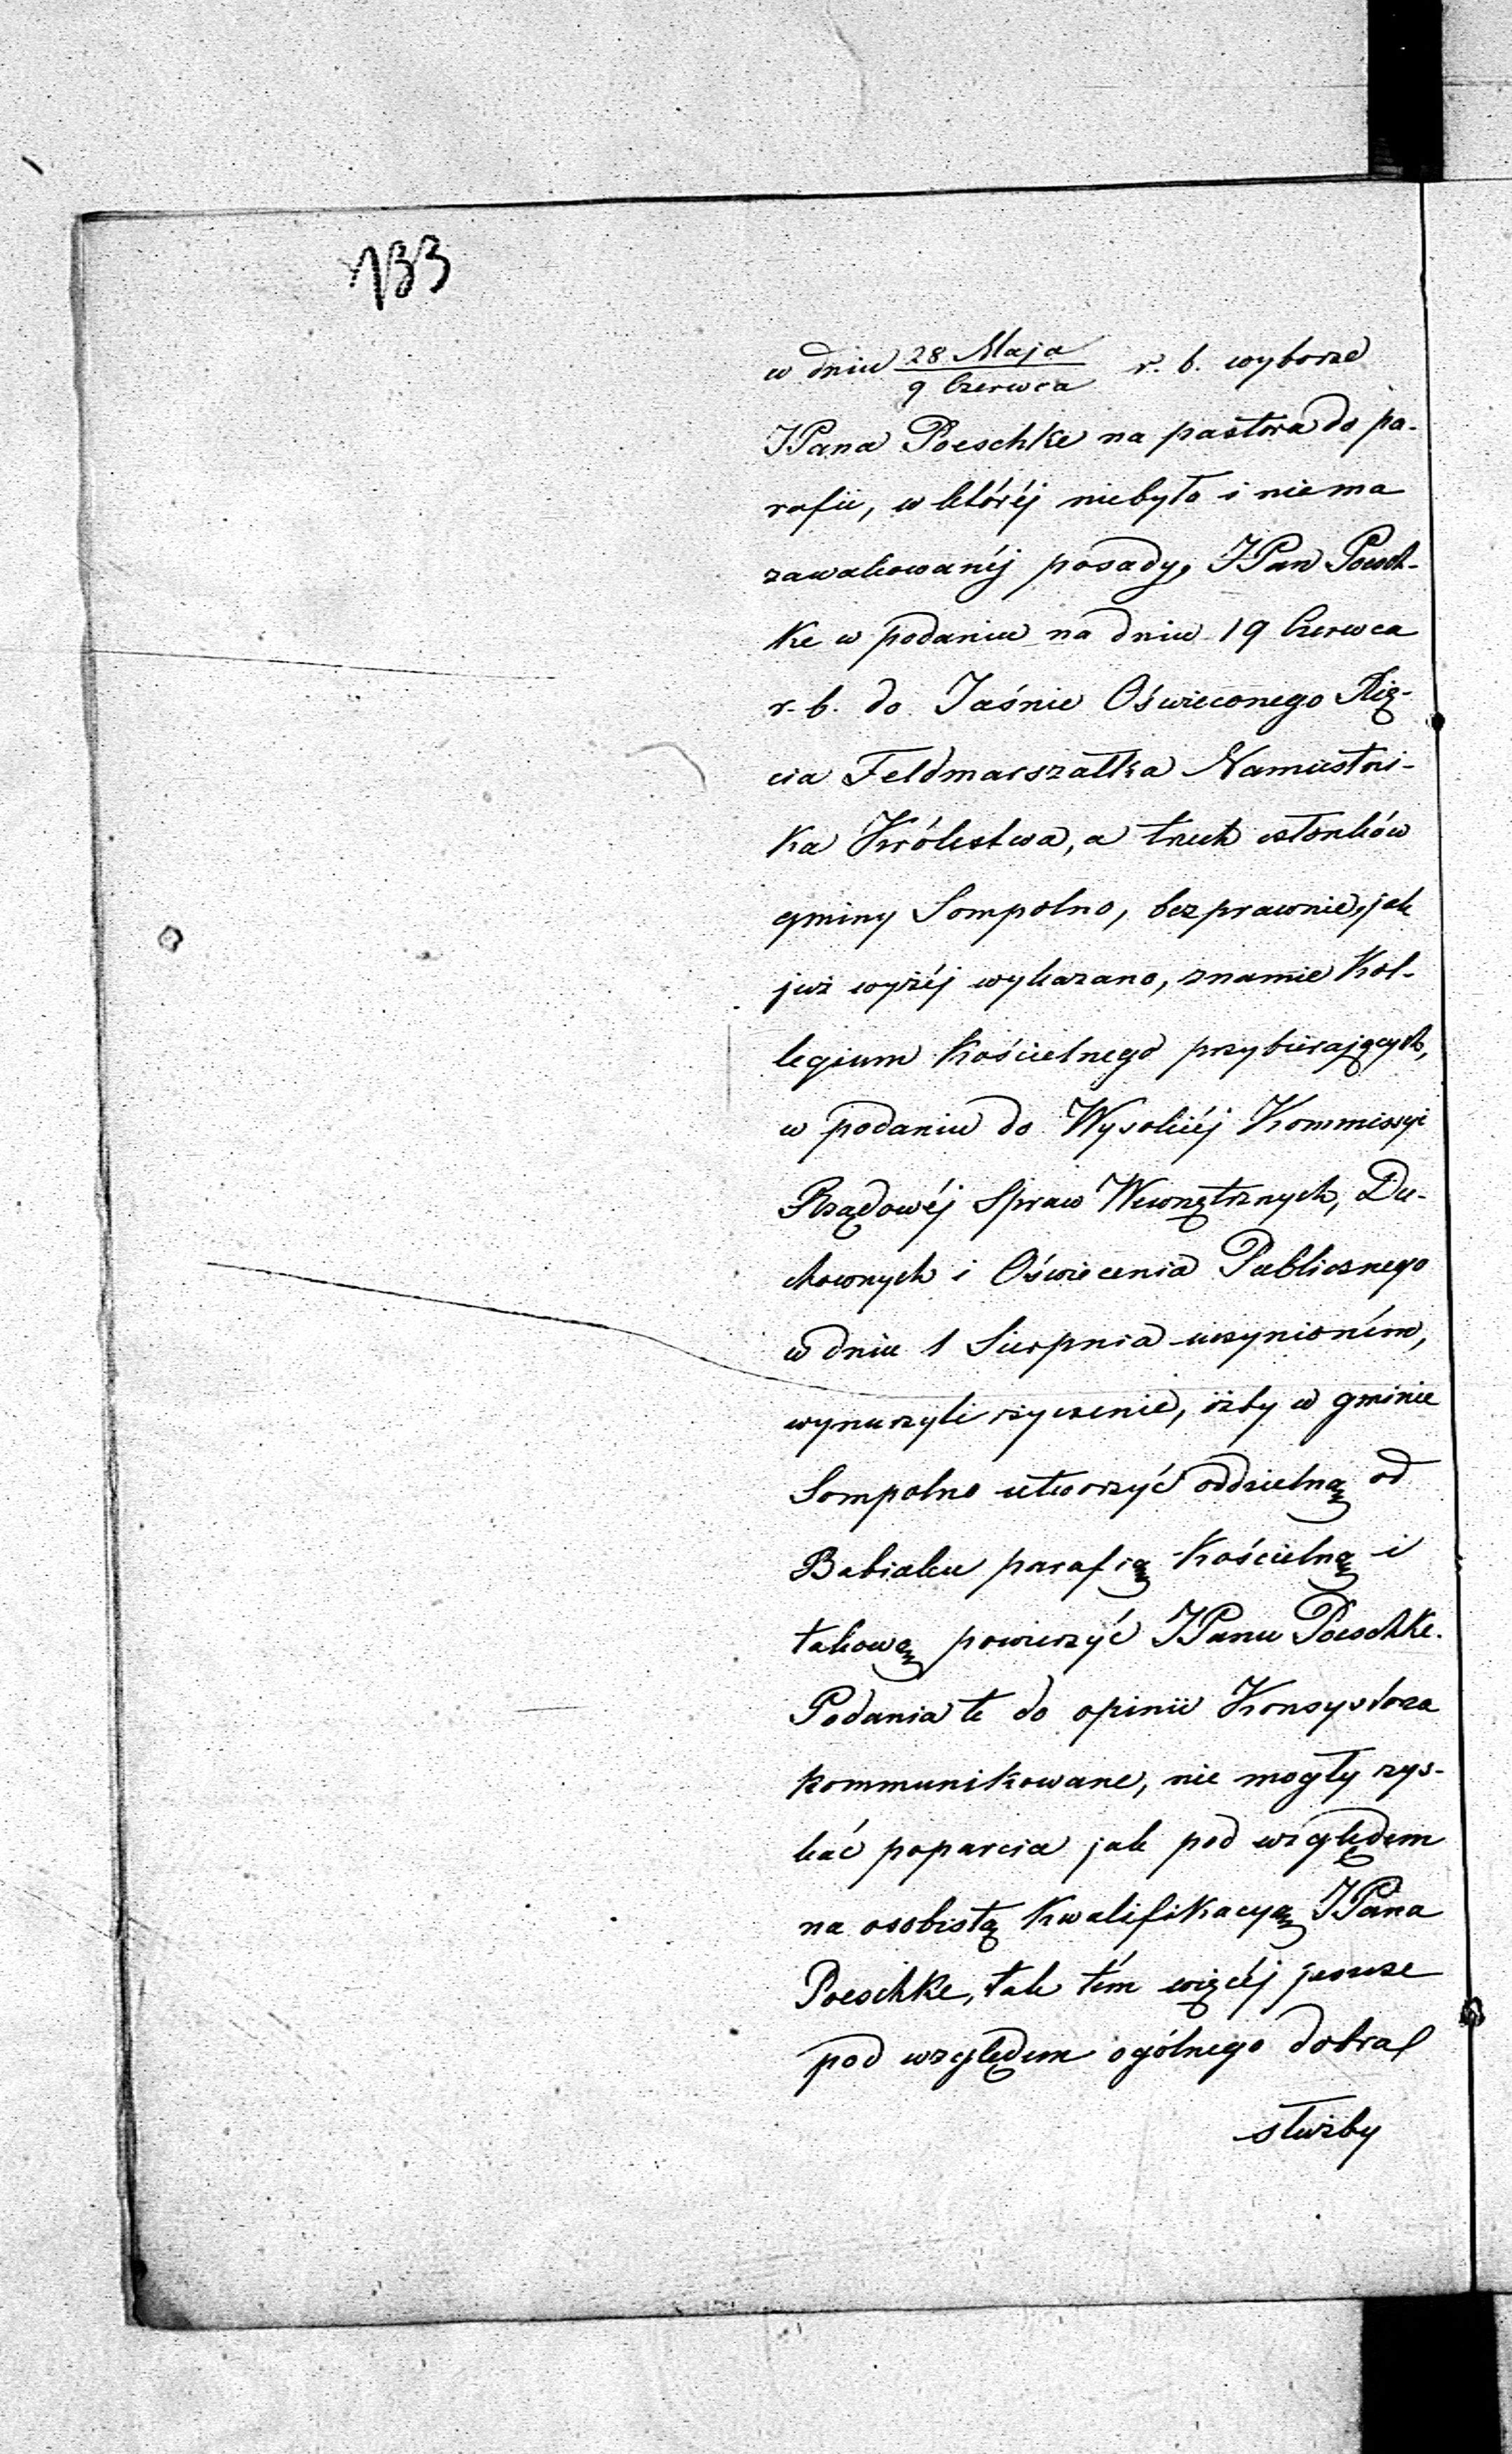 133
w dniu 28 Maja / 9 Czerwca r. b. wyborze
JPana Poeschke na pastora do pa-
rafii, w któréj niebyło i niema
zawakowanéj posady, JPan Poesch-
ke w podaniu na dniu 19 Czerwca
r. b. do Jaśnie Oświeconego Xię-
cia Feldmarszałka Namiestni-
ka Królestwa, a trzech członków
gminy Sompolno, bezprawnie, jak
już wyżéj wykazano, znamie Kol-
legium Kościelnego przybierających,
w podaniu do Wysokiéj Kommissyi
Rządowéj Spraw Wewnętrznych, Du-
chownych i Oświecenia Publicznego
w dniu 1 Sierpnia uczynioném,
wynurzyli życzenie, iżby w gminie
Sompolno utworzyć oddzielną od
Babiaku parafią Kościelną i
takową powierzyć JPanu Poeschke.
Podania te do opinii Konsystorza
kommunikowane, nie mogły zys-
kać poparcia jak pod względem
na osobistą Kwalifikacyą JPana
Poeschke, tak tém więcéj jeszcze
pod względem ogólnego dobra
służby